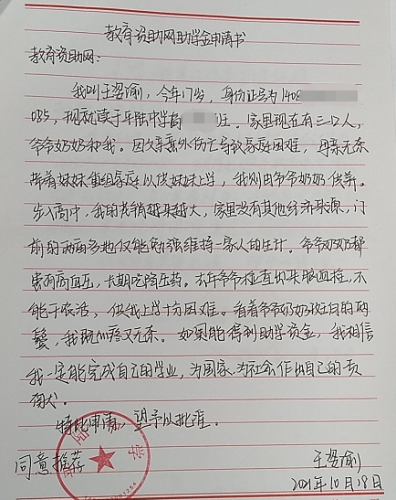 教育资助网助学金申请书
教育资助网：
我叫王翠渝，今年17岁，身份证号为1408
035，现就读于平陆中学高 班。家里现在有三口人，
爷爷奶奶和我。因父亲意外伤亡导致家庭困难，母亲无奈
带着妹妹重组家庭以供妹妹上学，我则由爷爷奶奶供养。
步入高中，我的花销越来越大，家里没有其他经济来源，门
前的两亩多地仅能勉强维持一家人的生计。爷爷奶奶都
患有高血压，长期吃降压药。去年爷爷检查出来脑血栓，不
能干农活，供我上学十分困难。看着爷爷奶奶斑白的两
鬓，我既心疼又无奈。如果能得到助学资金，我相信
我一定能完成自己的学业，为国家为社会作出自己的贡
献。
特此申请，望予以批准。
同意推荐
王翠渝
2021年10月19日